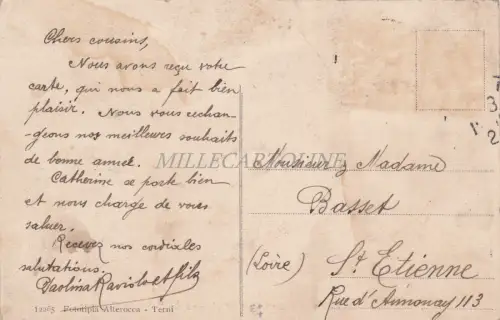 Chers cousins,
Nous avons reçu votre
carte, qui nous a fait bien
plaisir. Nous vous echan-
geons nos meilleurs souhaits
de bonne année.
Catherine se porte bien
et nous charge de vous
saluer.
Recevez nos cordiales
salutations.
Paolina
12265 Fototipia Alterocca - Terni
MILLECARTOLINE
Monsieur & Madame
Basset
(Loire) St Etienne
Rue d'Annonay 113